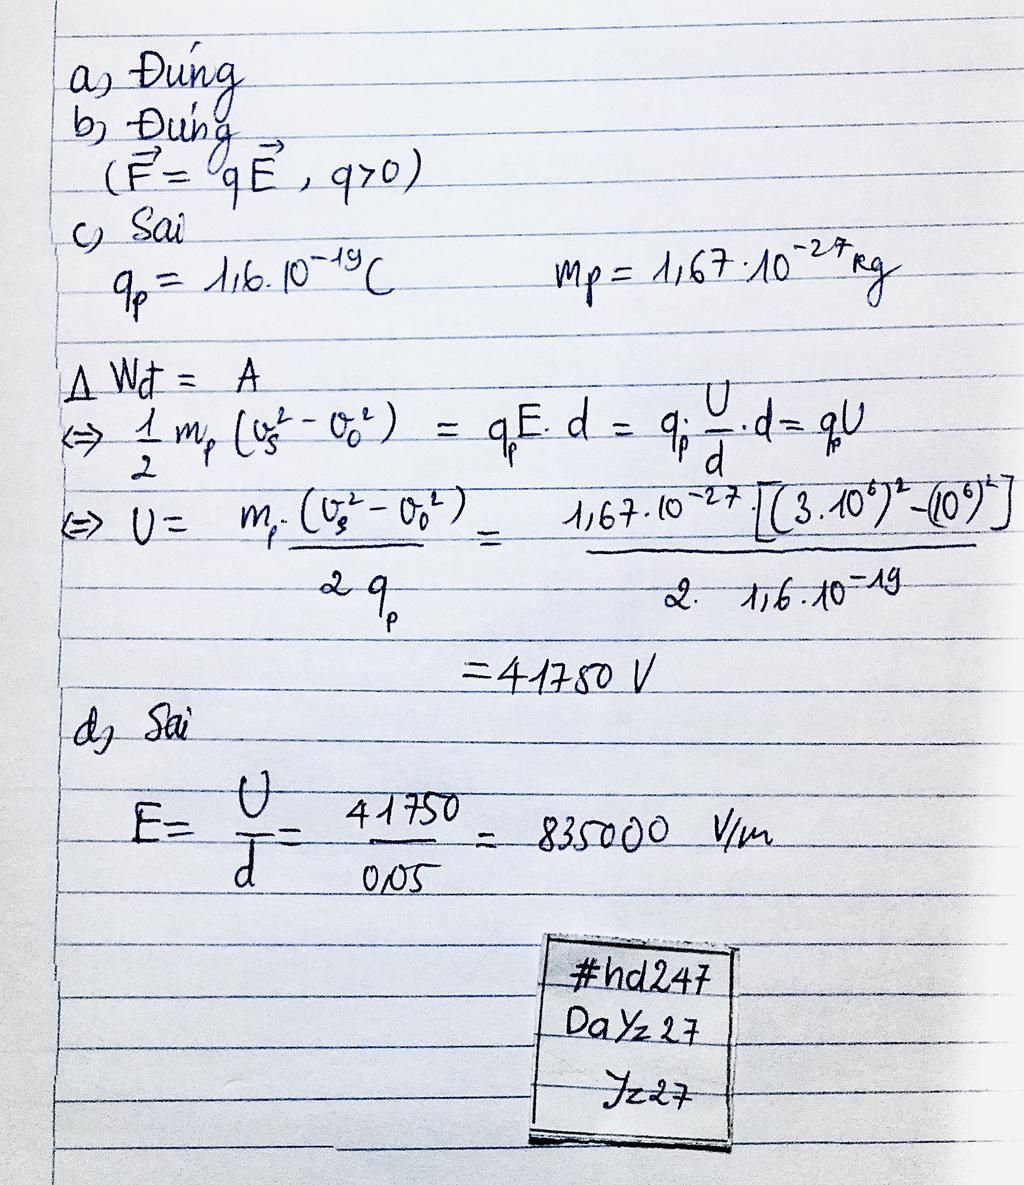 a, Đúng
b, Đúng
(F⃗ = qE⃗, q>0)
c, Sai
q_p = 1,6.10^-19 C    m_p = 1,67.10^-27 kg
Δ Wđ = A
⇔ 1/2 m_p (v_s² - v_o²) = q_p E. d = q_p. U/d . d = q_p U
⇔ U = m_p. (v_s² - v_o²) / 2 q_p = 1,67.10^-27. [(3.10^6)² - (10^6)²] / 2. 1,6.10^-19
= 41750 V
d, Sai
E = U/d = 41750/0,05 = 835000 V/m
#hd247
DaYz27
Yz27